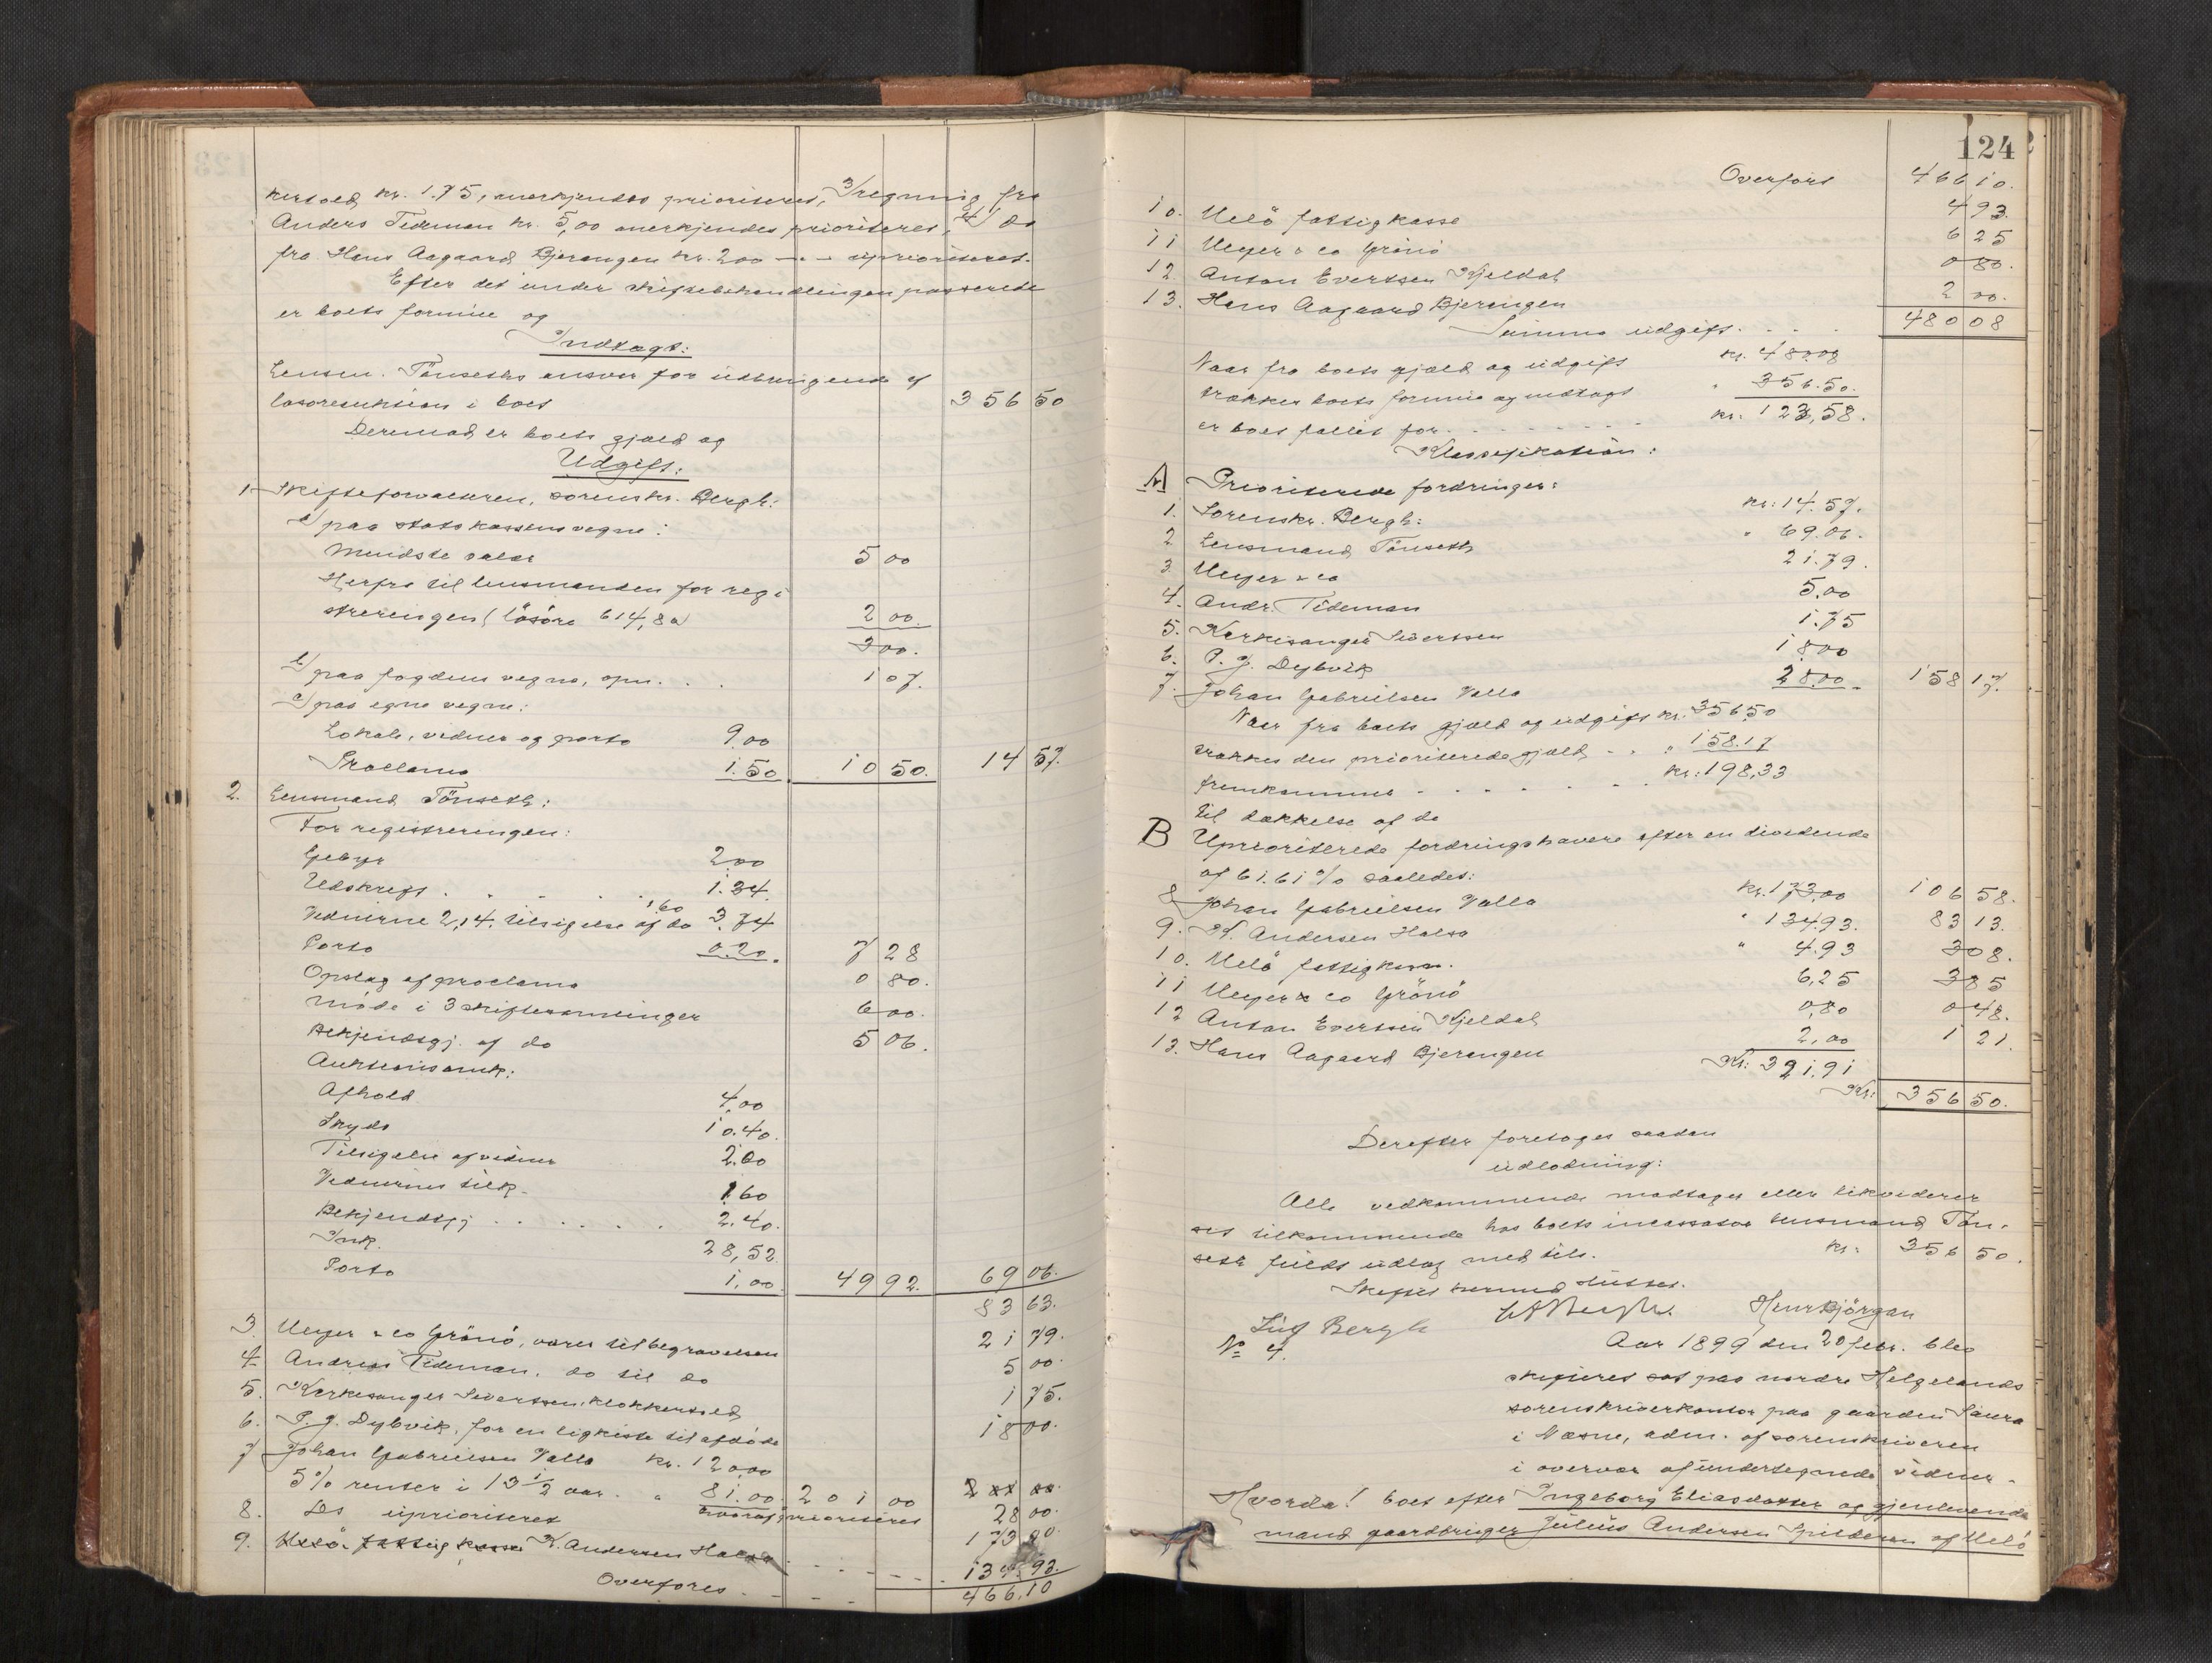 kersold kr. 1.75, anerkjendes prioriteret, 3/ regning fra
Anders Tideman kr. 5,00 anerkjendes prioriteret, 4/ do
fra Hans Aagaard Bjerangen kr. 2.00 —"— uprioriteret.
Efter det under skiftebehandlingen passerede
er boets formue og
Indtægt:
Lensm. Tönseths ansvar for udbringende af
løsøreauktion i boet 356 50
Derimod er boets gjæld og
Udgift:
1 Skifteforvalteren, sorenskr. Bergh:
a/ paa statskassens vegne:
Mindste salær 5 00
Herfra til lensmanden for regi
streringen (lösöre 614,80) 2 00.
3 00.
b/ paa fogdens vegne, opn. . . . 1 07.
c/ paa egne vegne:
Lokale, vidner og porto 9,00
Proclama 1.50 10 50. 14 57.
2. Lensmand Tönseth:
For registreringen:
Gebyr 2,00
Udskrift . . . . . . 1.34.
Vidnerne 2,14, tilsigelse af do 1,60 3.74
Porto 0.20. 7 28
Opslag af proclama 0 80.
Möde i 3 skiftesamlinger 6 00.
Bekjendtgj. af do 5 06.
Auktionsomk:
Afhold 4,00
Skyds 10.40.
Tilsigelse af vidner 2.60
Vidnernes tilk. 1.60
Bekjendtgj . . . . . . 2.40.
Ink. 28,52
Porto 1,00 49 92. 69 06.
83 63.
3. Meyer & co Grönö, varer til begravelsen 21 79.
4. Andreas Tideman, do til do 5 00.
5. Kirkesanger Sivertsen, klokkersold 1 75.
6. P. J. Dybvik, for en ligkiste til afdöde 18 00.
7 Johan Gabrielsen Valla kr. 120,00
5 % renter i 13 1/2 aar. . " 81.00 201 00
hvoraf prioriteret 28 00.
8. Do uprioriteret 173 00
9. Melö fattigkasse K. Andersen Halsa . . . . . 134.93.
Overføres . - - - 466,10
124
Overført 466 10.
10. Melö fattigkasse 4 93.
11 Meyer & co Grönö 6 25
12. Anton Evertsen Kjeldal 0 80.
13. Hans Aagaard Bjerangen 2 00.
Summa udgift . . . . 480 08
Naar fra boets gjæld og udgift kr. 480.08
trækkes boets formue og indtægt " 356.50.
er boet fallit for . . . . . . . . kr. 123,58.
Klassifikation:
A Prioriterede fordringer:
1. Sorenskr. Bergh: kr: 14.57.
2 Lensmand Tönseth " 69.06.
3. Meyer & co 21.79.
4. Andr. Tideman 5,00
5. Kirkesanger Sivertsen 1.75
6. P. J. Dybvik 18,00
7. Johan Gabrielsen Valla 28.00 158 17.
Naar fra boets gjæld og udgift kr. 356,50
trækkes den prioriterede gjæld - . . " 158.17
fremkommer - . . . . . . . kr: 198,33
til dækkelse af de
B Uprioriterede fordringshavere efter en dividende
af 61.61 % saaledes:
8 Johan Gabrielsen Valla kr. 173,00 106 58.
9. K. Andersen Halsa " 134.93. 83 13.
10. Melö fattigkasse. " 4.93 3 08.
11 Meyer & co Grönö 6,25 3 85
12 Anton Evertsen Kjeldal 0,80 0 48.
13. Hans Aagaard Bjerangen 2,00 1 21.
Kr: 321.91
Kr: 356 50.
Derefter foretoges saadan
udlodning:
Alle vedkommende modtager eller likviderer
sit tilkommende hos boets incassator lensmand Tön-
seth fuldt udlæg med tils. kr: 356 50.
Skiftet hermed sluttet.
Lüg Bergh Henr Bjørgan
No 4. Aar 1899 den 20 febr. blev
skifteret sat paa nordre Helgelands
sorenskriverkontor paa gaarden Saura
i Næsne, adm. af sorenskriveren
i overvær af undertegnede vidner -
Hvorda! boet efter Ingeborg Eliasdatter og gjenlevende
mand gaardbruger Julius Andersen Spilderen af Melö